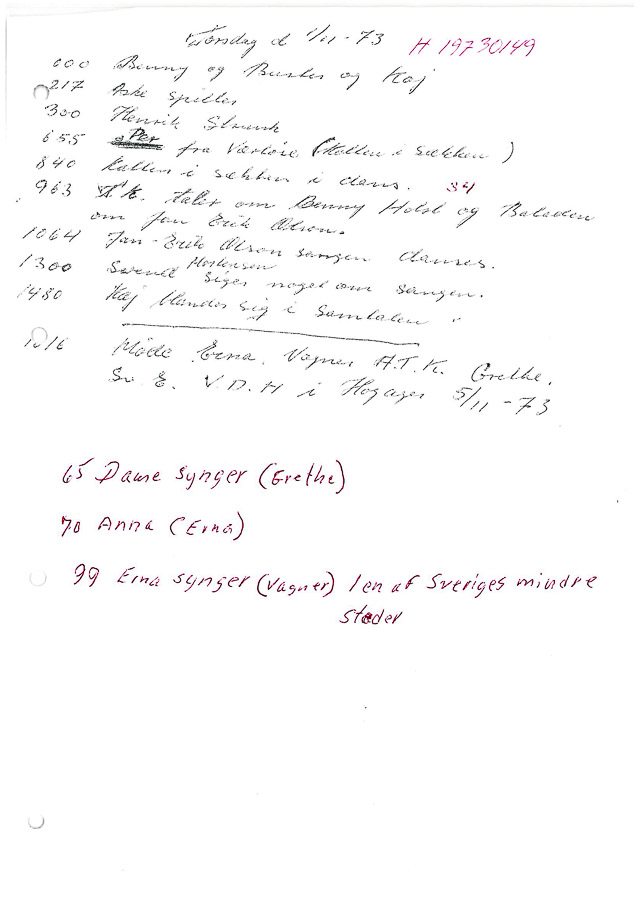 Torsdag d 1/11 - 73 H 19730149
000 Benny og Buster og Kaj
217 Aske spiller
300 Henrik Strunk
655 Per fra Værløse (Katten i sækken)
840 Katten i sækken i dans. 34
963 A.K. taler om Benny Holst og Balladen
om Jan Erik Olson.
1064 Jan-Erik Olson sangen danses.
1300 Svend Mortensen siger noget om sangen.
1480 Kaj blander sig i samtalen.
Møde Erna. Vagner A.T.K. Grethe.
Sv. E. V.D.H i Hogager 5/11 - 73
65 Dame synger (Grethe)
70 Anna (Erna)
99 Erna synger (Vagner) I en af Sveriges mindre
stæder